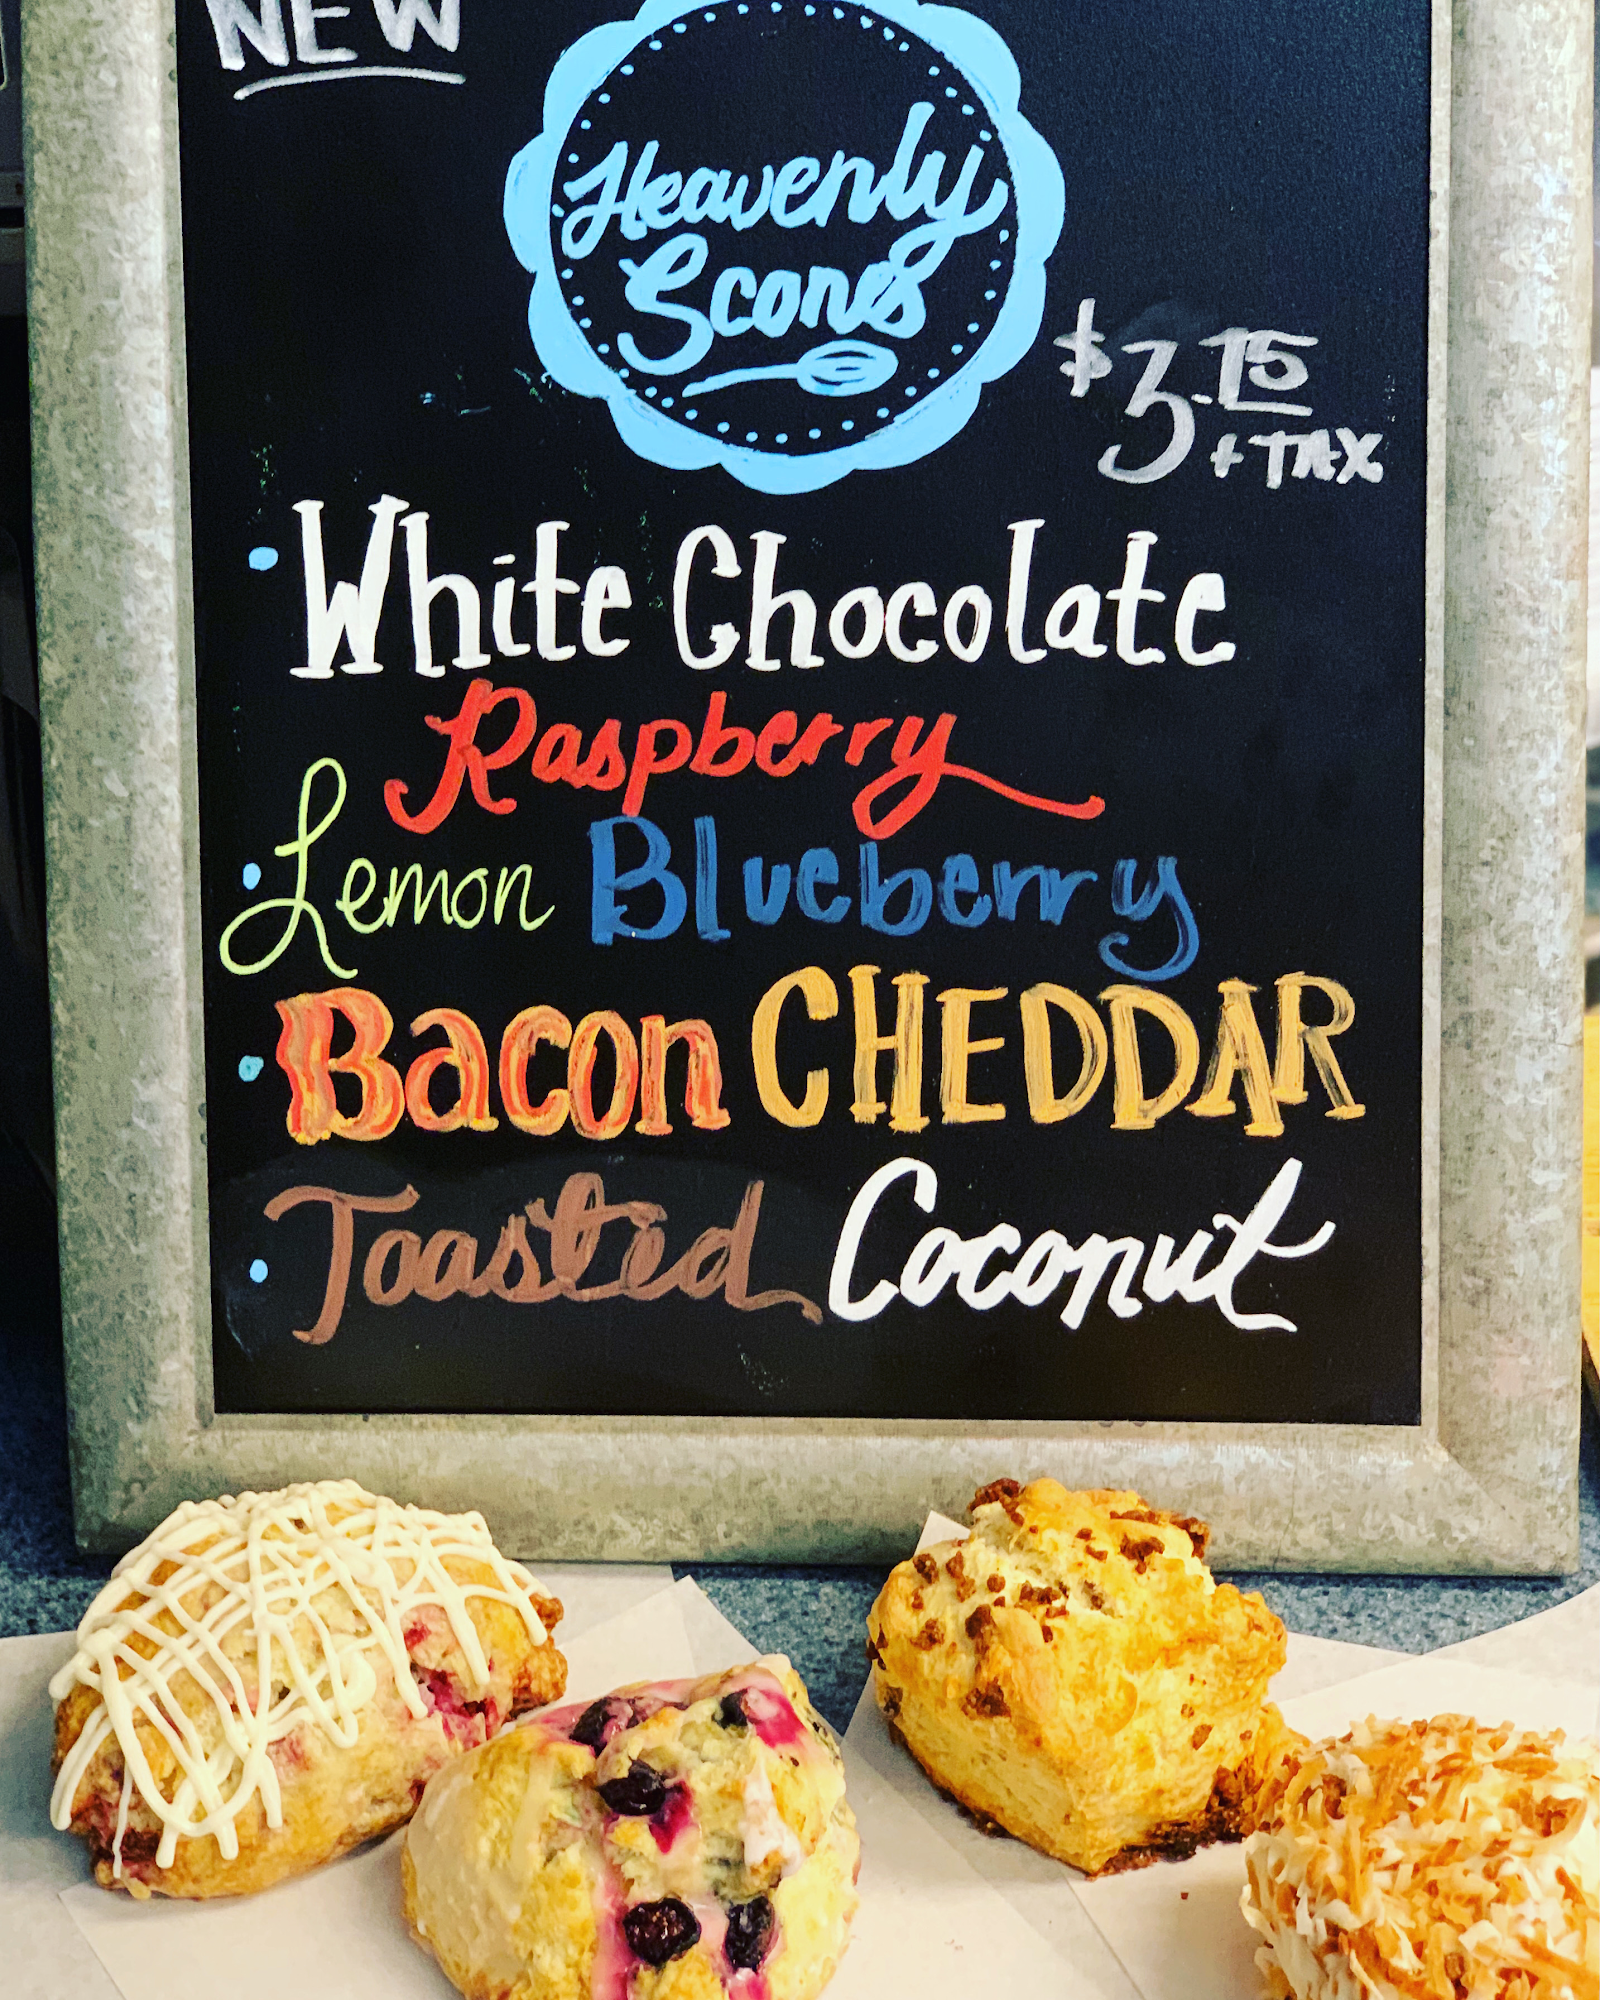 NEW
Heavenly
Scones
$3.75
+ TAX
• White Chocolate
Raspberry
• Lemon Blueberry
• Bacon CHEDDAR
• Toasted Coconut